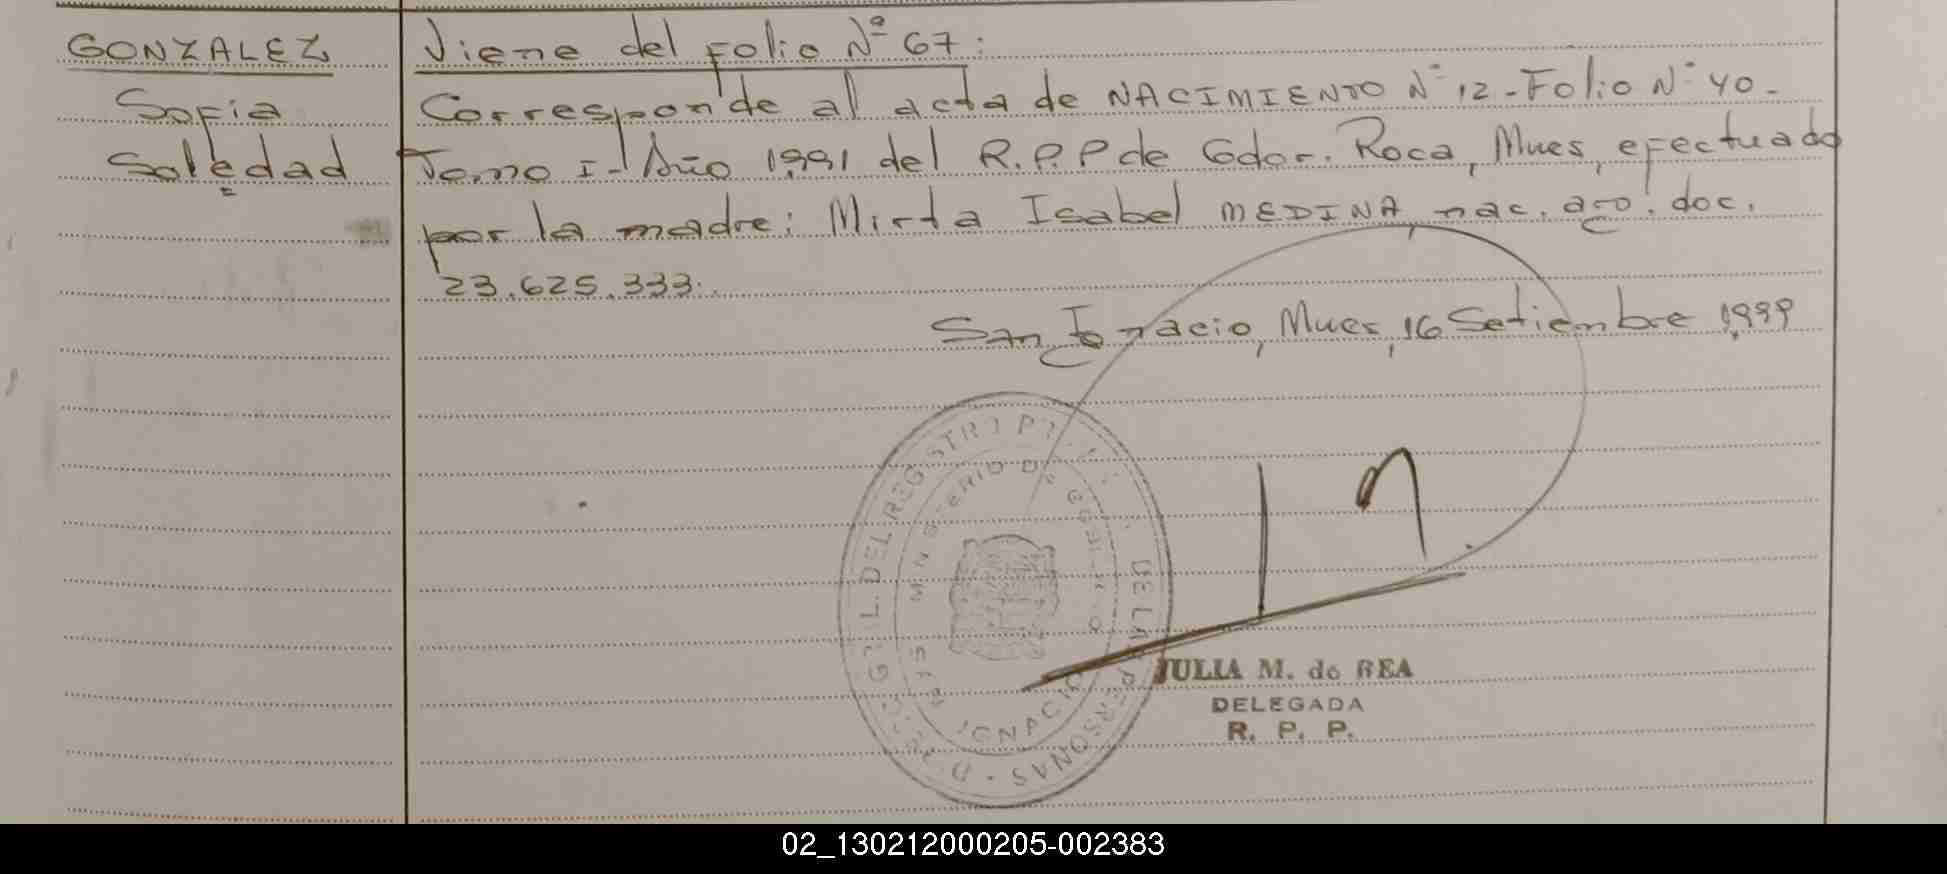 GONZALEZ
Sofia
Soledad
Viene del Folio Nº 67:
Corresponde al acta de NACIMIENTO Nº 12 - Folio Nº 40 -
Tomo I - Año 1991 del R.P.P de Gdor. Roca, Mnes, efectuado
por la madre: Mirta Isabel MEDINA, nac. arg. doc.
23.625.333.
San Ignacio, Mnes, 16 Setiembre 1999
DEL REGISTR
DE LAS PERSONAS
MINISTERIO DE
IGNACIO
JULIA M. de REA
DELEGADA
R. P. P.
02_130212000205-002383